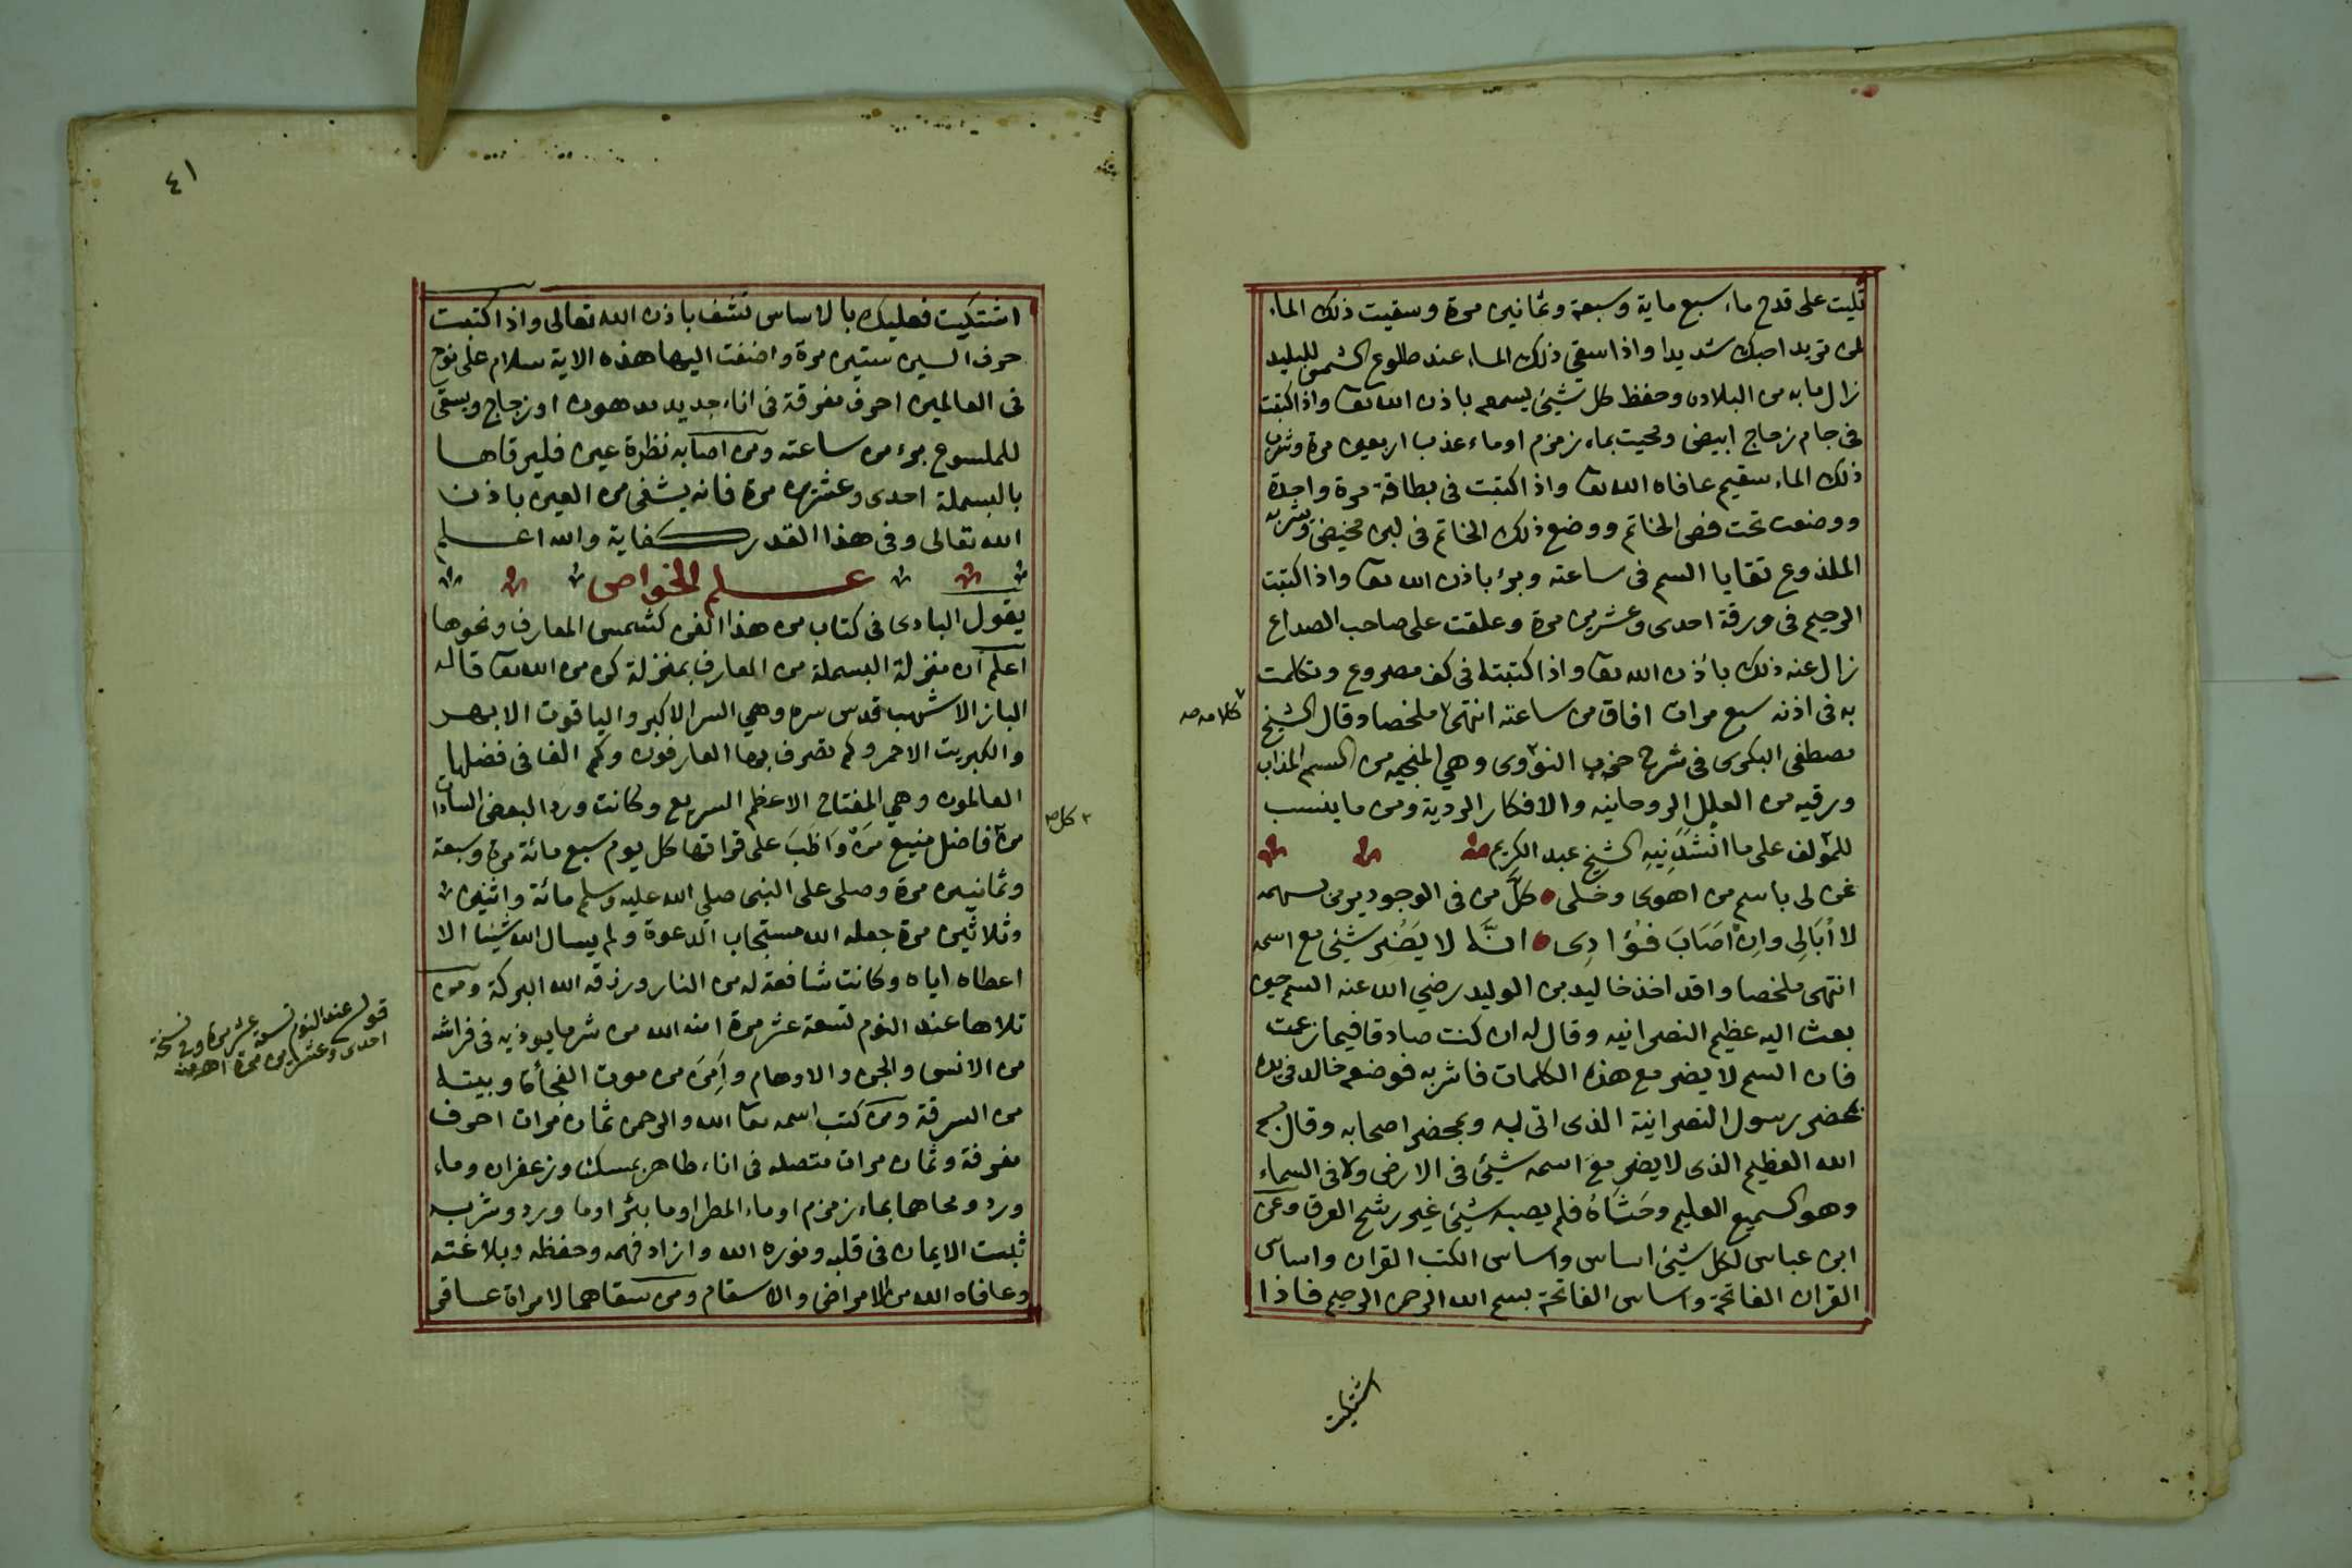 تليت على قدح ماء سبع ماية وسبعة وثمانين مرة وسقيت ذلك الماء
لمن تريد احبك شديدا واذا سقى ذلك الماء عند طلوع الشمس للبليد
زال ما به من البلادة وحفظ كل شيئ يسمعه باذن الله تعا واذا كتبت
فى جام زجاج ابيض ومحيت بماء زمزم او ماء عذب اربعين مرة وشرب
ذلك الماء سقيم عافاه الله تعا واذا كتبت فى بطاقة مرة واحدة
ووضعت تحت فص الخاتم ووضع ذلك الخاتم فى لبن مخيض وشربه
الملذوع تقايا السم فى ساعته وبرء باذن الله تعا واذا كتبت
الرحيم فى ورقة احدى وعشرين مرة وعلقت على صاحب الصداع
زال عنه ذلك باذن الله تعا واذا كتبته فى كف مصروع وتكلمت
به فى اذنه سبع مرات افاق من ساعته انتهى ملخصا وقال الشيخ
كلامه صه
مصطفى البكرى فى شرح حزب النووى وهي المنجيه من السم المذاب
ورقيه من العلل الروحانيه والافكار الردية ومن ما ينسب
للمؤلف على ما انْشَدَنِيهِ الشيخ عبد الكريم
غن لى باسم من اهوى وخلى كلَّ من فى الوجود يرمى بسهمه
لا اُبَالِى وان اَصَابَ فُؤَادِى انَّه لا يَضُر شيئ مع اسمه
انتهى ملخصا وقد اخذ خاليد بن الوليد رضي الله عنه السم حين
بعث اليه عظيم النصرانيه وقال له ان كنت صادقا فيما زعمت
فان السم لا يضر مع هذه الكلمات فاشربه فوضعه خالد فى يده
بمحضر رسول النصرانية الذى اتى به وبمحضر اصحابه وقال بسم
الله العظيم الذى لا يضر مع اسمه شيئ فى الارض ولا فى السماء
وهو السميع العليم وحَشَاهُ فلم يصبه شيئ غير رشح العرق وعن
ابن عباس لكل شيئ اساس واساس الكتب القران واساس
القران الفاتحة واساس الفاتحة بسم الله الرحمن الرحيم فاذا
اشتكيت
٤١
اشتكيت فعليك بالاساس تشف باذن الله تعالى واذا كتبت
حرف السين ستين مرة واضفت اليها هذه الاية سلام على نوح
فى العالمين احرف مفرقة فى اناء جديد مدهون او زجاج ويسقى
للملسوع برء من ساعته ومن اصابه نظرة عين فليرقاها
بالبسملة احدى وعشرين مرة فانه يشفى من العين باذن
الله تعالى وفى هذا القدر كفاية والله اعلم
علم الخواص
يقول البادى فى كتاب من هذا الفن كشمس المعارف ونحوها
اعلم ان منزلة البسملة من المعارف بمنزلة كن من الله تعا قاله
الباز الاشهب قدس سره وهي السر الاكبر والياقوت الابهر
والكبريت الاحمر وكم تصرف بها العارفون وكم الف فى فضلها
العالمون وهي المفتاح الاعظم السريع وكانت وردا لبعض السادات
من فاضل منيع مَن وَاظَبَ على قراتها كل يوم سبع مائة مرة وسبعة
٢ كل صه
وثمانين مرة وصلى على النبى صلى الله عليه وسلم مائة واثنين
وثلاثين مرة جعله الله مستجاب الدعوة ولم يسال الله شيئا الا
اعطاه اياه وكانت شافعة له من النار ورزقه الله البركة ومن
تلاها عند النوم تسعة عشر مرة امنه الله من شر ما يوذيه فى فراشه
قوله عند النوم تسعة عشر مرة وفى نسخة
احدى وعشرين مرة اهـ منه
من الانس والجن والاوهام وأمِنَ من موت الفجأة وبيته
من السرقة ومن كتب اسمه تعا الله والرحمن ثمان مرات احرف
مفرقة وثمان مرات متصله فى اناء طاهر بمسك وزعفران وماء
ورد ومحاها بماء زمزم او ماء المطر او ما بئر او ما ورد وشربه
ثبت الايمان فى قلبه ونوره الله وازاد فهمه وحفظه وبلاغته
وعافاه الله من الامراض والاسقام ومن سقاهما لامراة عاقر